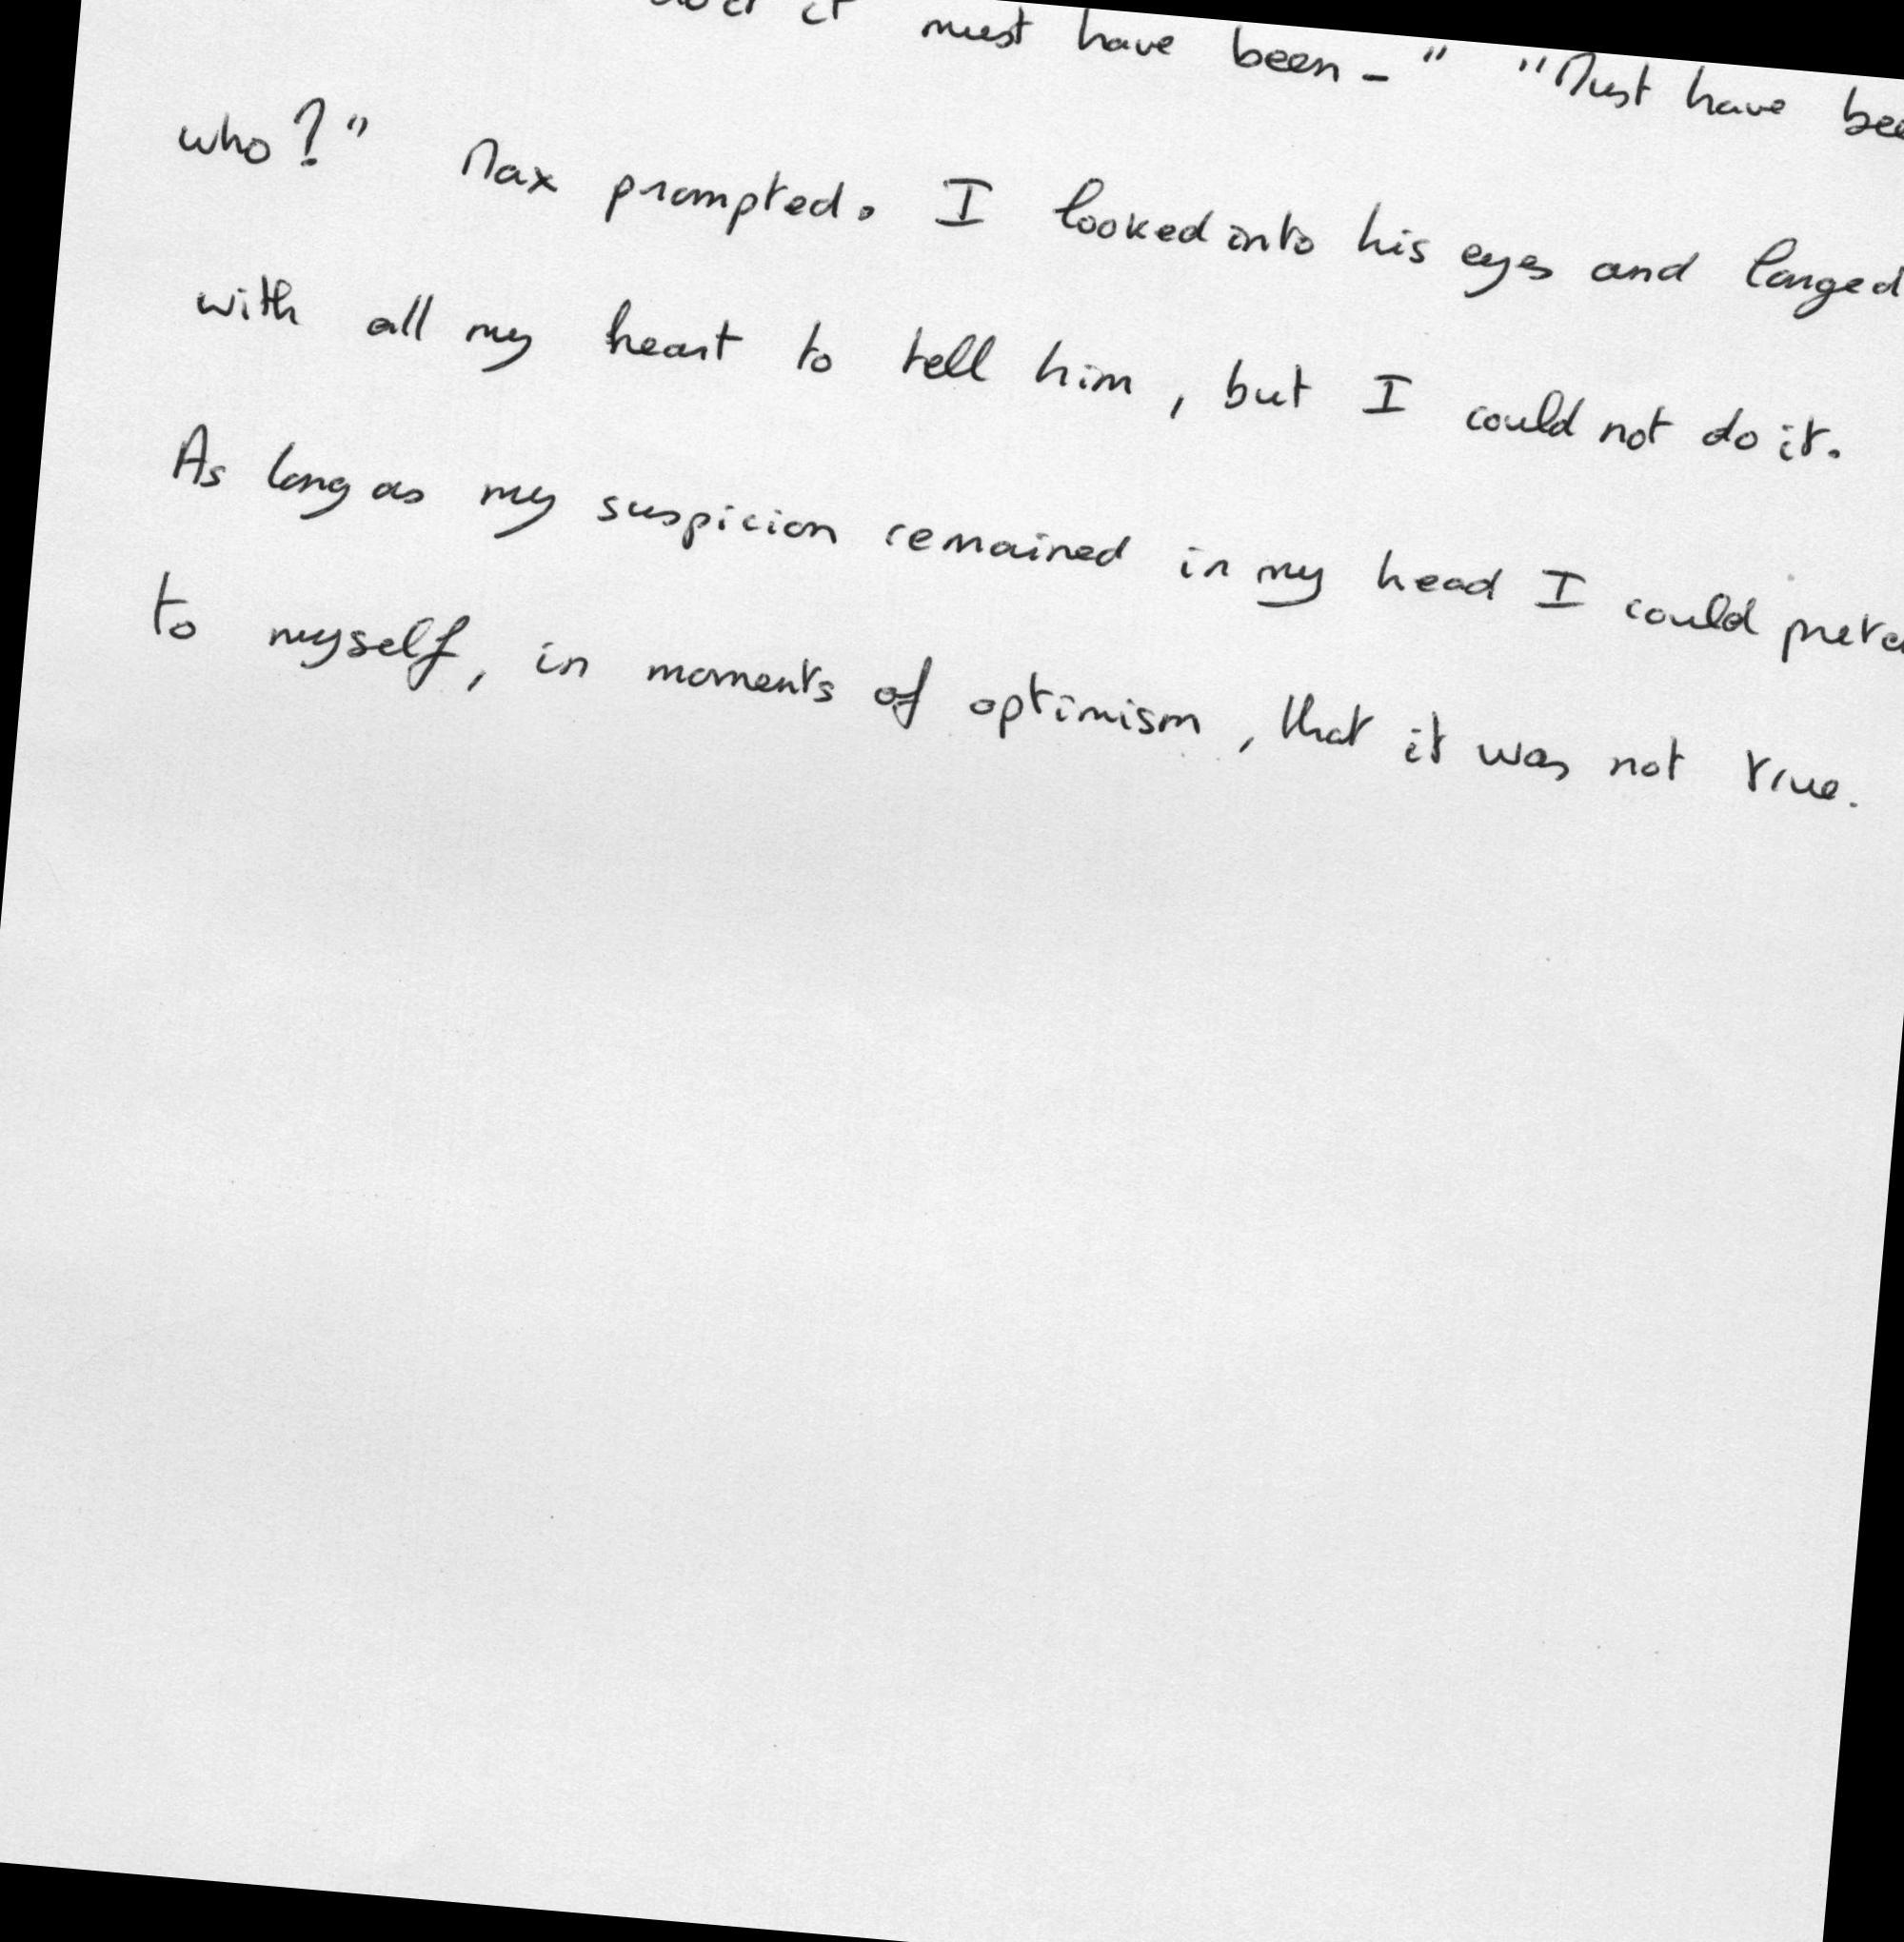 it must have been - " "Must have
who?" Max prompted. I looked into his eyes and longed
with all my heart to tell him, but I could not do it.
As long as my suspicion remained in my head I could
to myself, in moments of optimism, that it was not true.